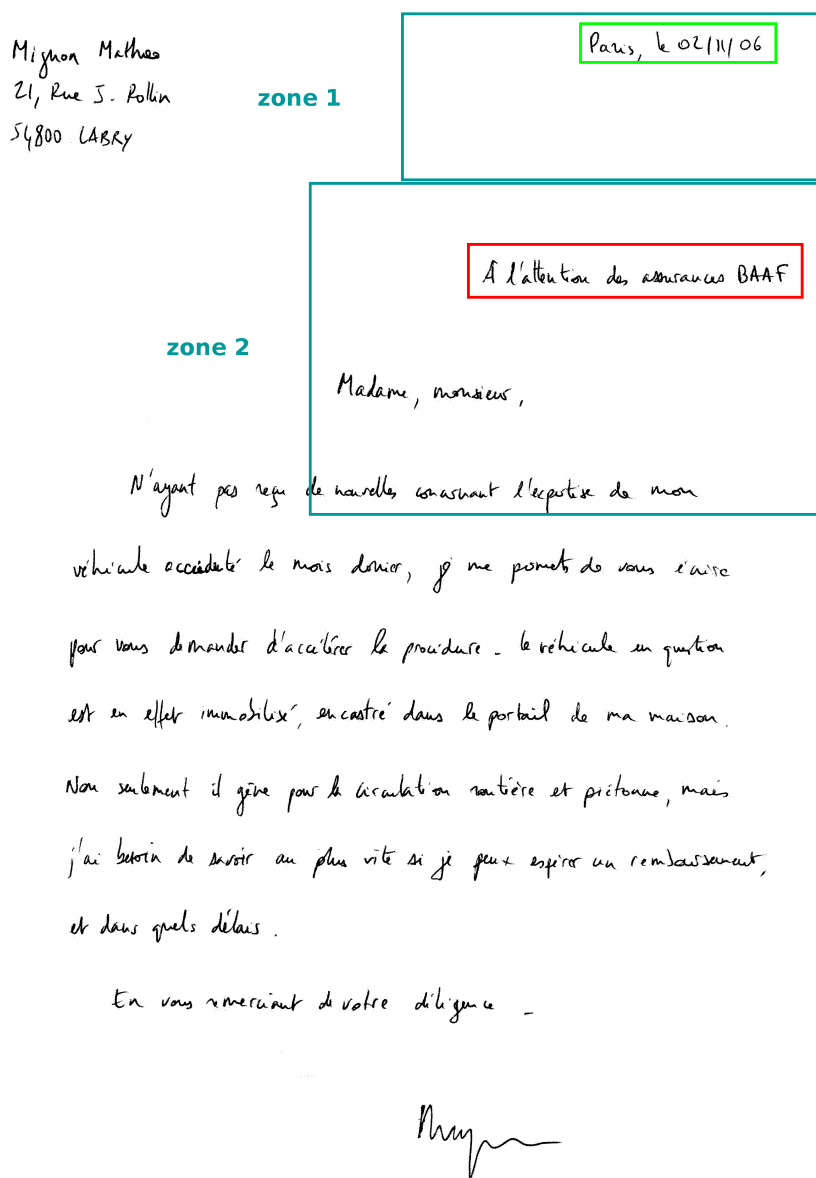 Mignon Mathieo
21, Rue J. Rollin
54800 LABRY
zone 1
Paris, le 02/11/06
À l'attention des assurances BAAF
zone 2
Madame, monsieur,
N'ayant pas reçu de nouvelles concernant l'expertise de mon
véhicule accidenté le mois dernier, je me permets de vous écrire
pour vous demander d'accélérer la procédure - le véhicule en question
est en effet immobilisé, encastré dans le portail de ma maison.
Non seulement il gêne pour la circulation routière et piétonne, mais
j'ai besoin de savoir au plus vite si je peux espérer un remboursement,
et dans quels délais.
En vous remerciant de votre diligence -